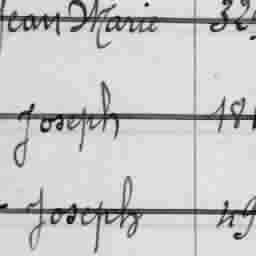 Jean Marie 32
Joseph 18
Joseph 49